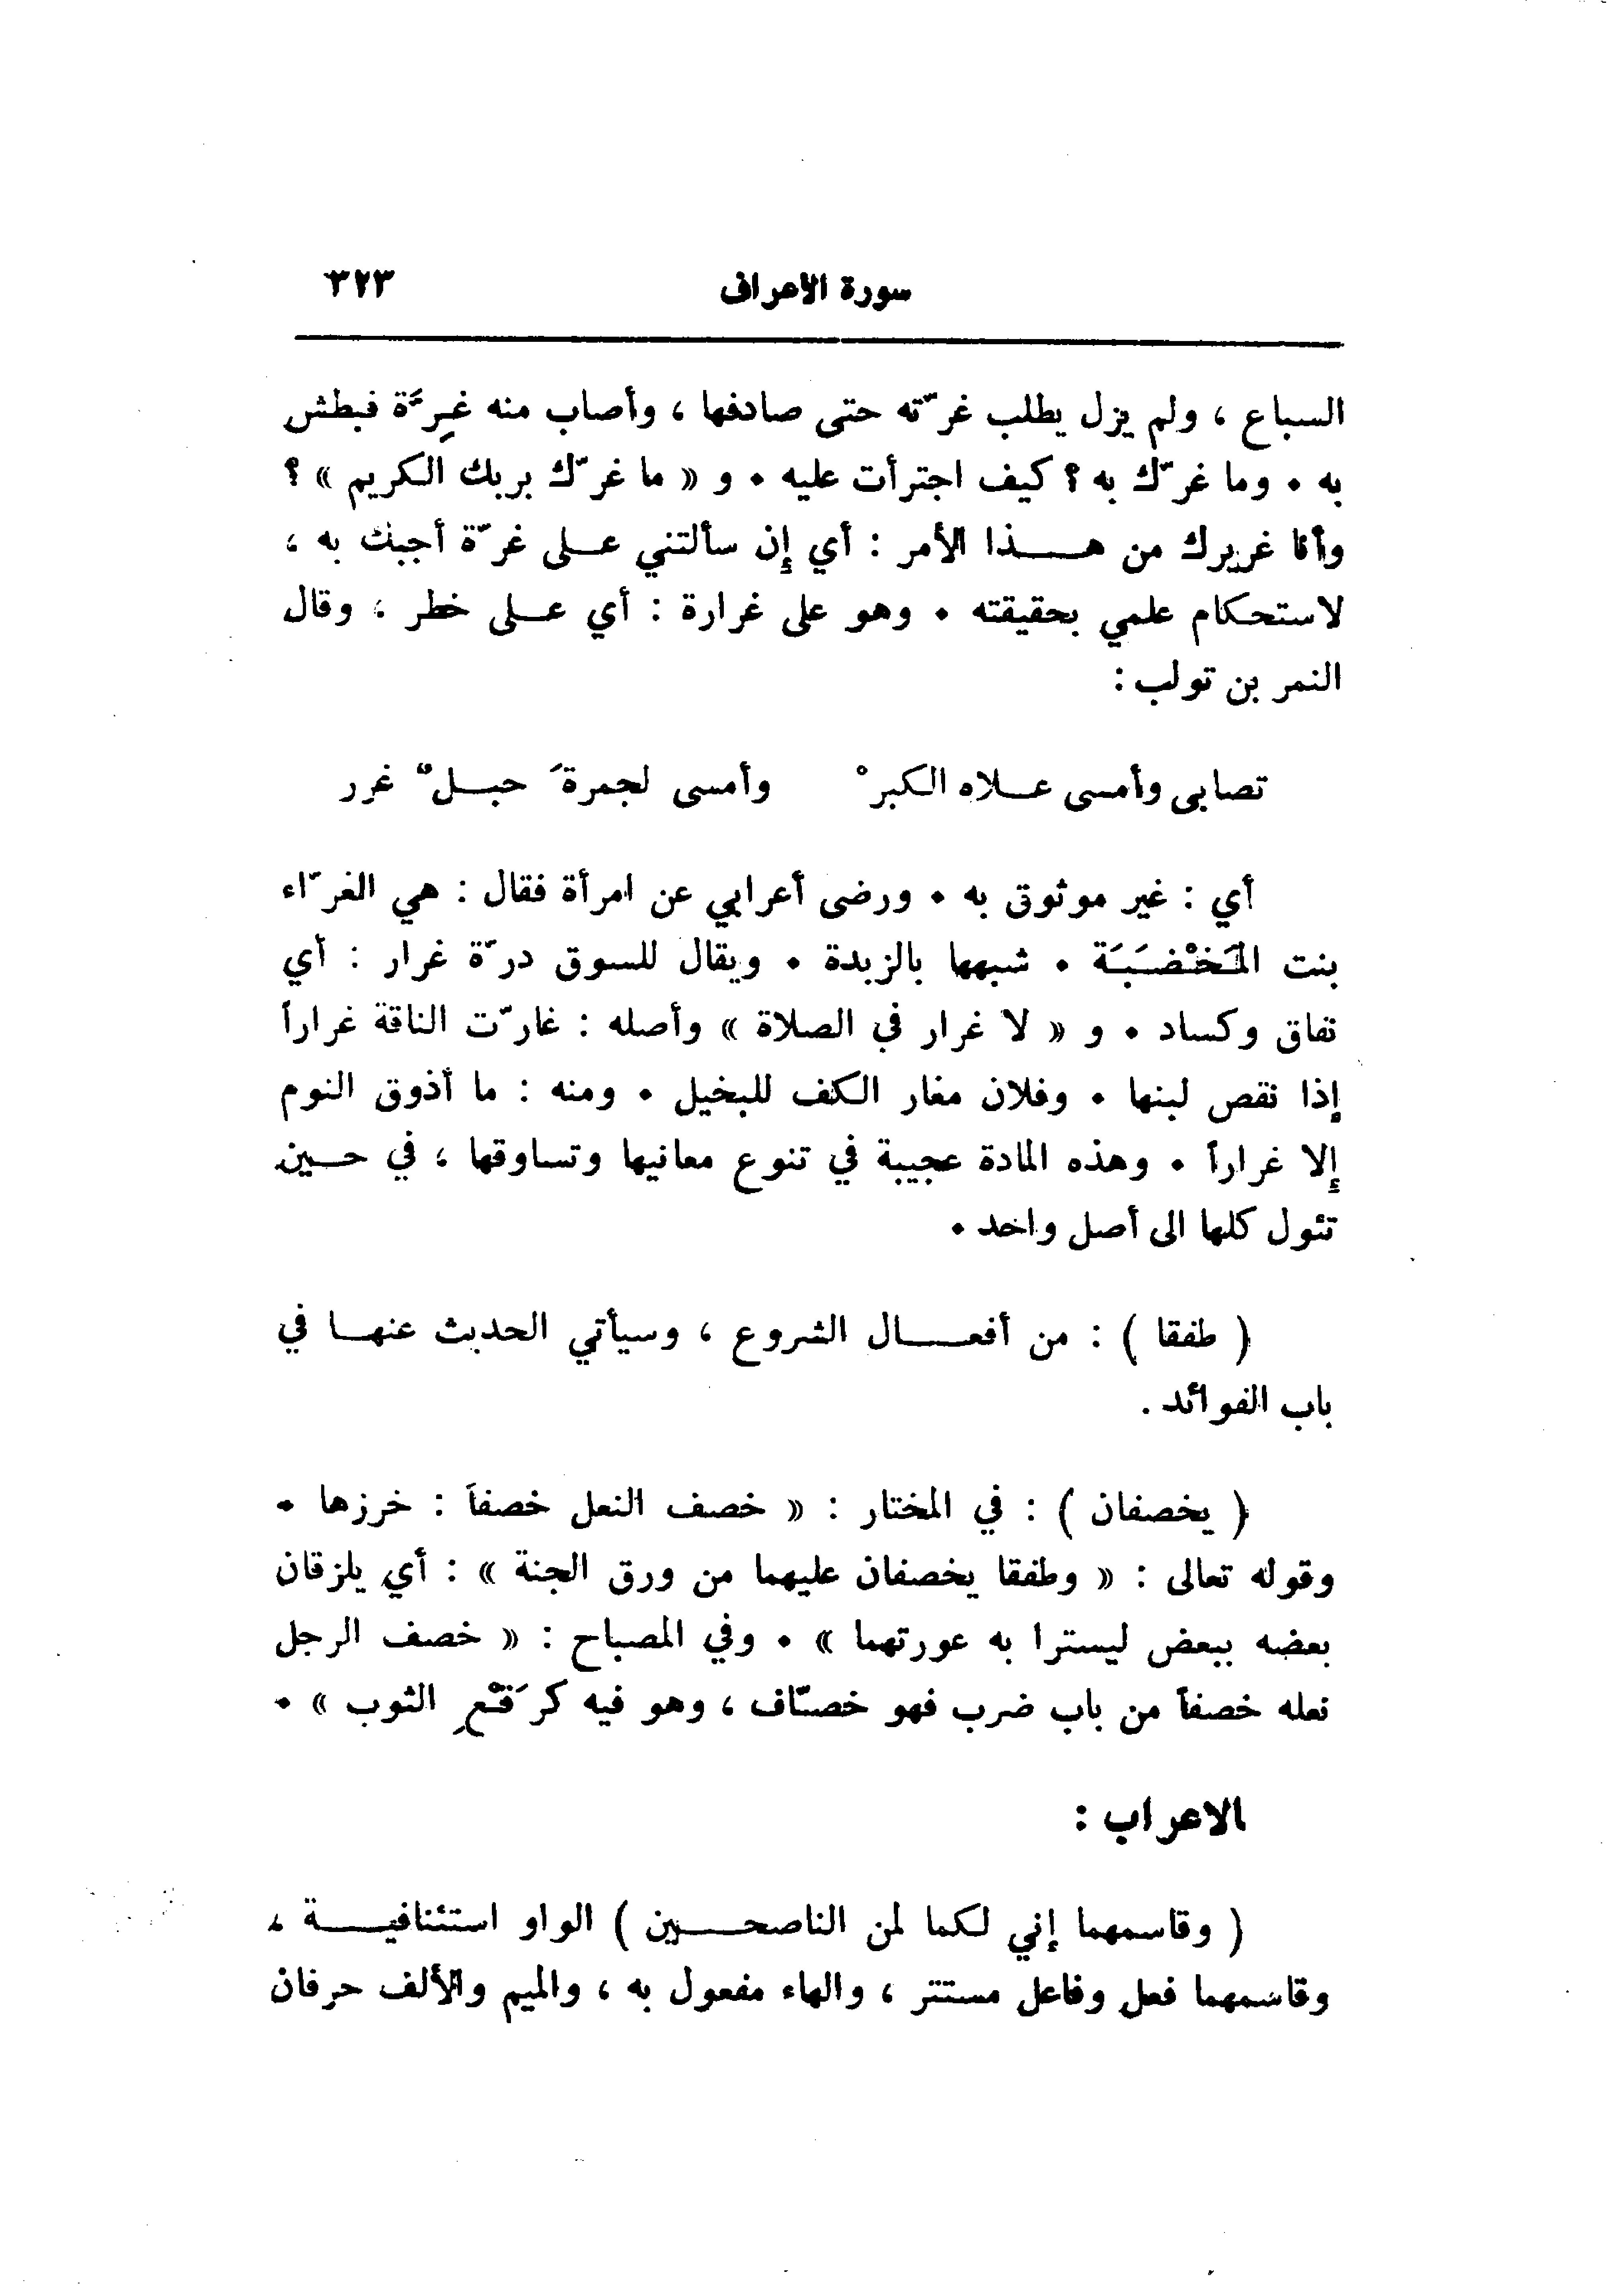 سورة الأعراف ٣٢٣
السباع ، ولم يزل يطلب غرّته حتى صادفها ، وأصاب منه غِرَّة فبطش
به . وما غرّك به ؟ كيف اجترأت عليه . و « ما غرّك بربك الكريم » ؟
وأنا غريرك من هذا الأمر : أي إن سألتني على غرّة أجبك به ،
لاستحكام علمي بحقيقته . وهو على غرارة : أي على خطر ، وقال
النمر بن تولب :
تصابى وأمسى علاه الكبرْ وأمسى لجمرةَ حبلٌ غرر
أي : غير موثوق به . ورضى أعرابي عن امرأة فقال : هي الغرّاء
بنت المَخْضَبَة . شبهها بالزبدة . ويقال للسوق درّة غرار : أي
نفاق وكساد . و « لا غرار في الصلاة » وأصله : غارّت الناقة غراراً
إذا نقص لبنها . وفلان مغار الكف للبخيل . ومنه : ما أذوق النوم
إلا غراراً . وهذه المادة عجيبة في تنوع معانيها وتساوقها ، في حين
تئول كلها الى أصل واحد .
( طفقا ) : من أفعال الشروع ، وسيأتي الحديث عنها في
باب الفوائد .
( يخصفان ) : في المختار : « خصف النعل خصفاً : خرزها .
وقوله تعالى : « وطفقا يخصفان عليهما من ورق الجنة » : أي يلزقان
بعضه ببعض ليسترا به عورتهما » . وفي المصباح : « خصف الرجل
نعله خصفاً من باب ضرب فهو خصّاف ، وهو فيه كرَقْعِ الثوب » .
الاعراب :
( وقاسمهما إني لكما لمن الناصحين ) الواو استئنافية ،
وقاسمهما فعل وفاعل مستتر ، والهاء مفعول به ، والميم والألف حرفان